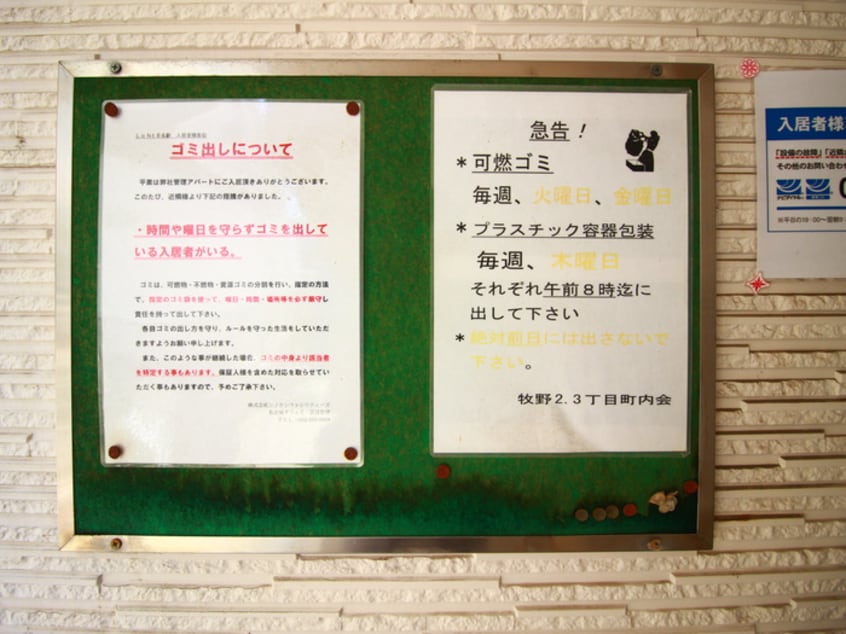 入居者様各位
ゴミ出しについて
平素は弊社管理アパートにご入居頂きありがとうございます。
このたび、近隣様より下記の指摘がありました。
・時間や曜日を守らずゴミを出して
いる入居者がいる。
ゴミは、可燃物・不燃物・資源ゴミの分別を行い、指定の方法
で、指定のゴミ袋を使って、曜日・時間・場所等を必ず厳守し
責任を持って出して下さい。
各自ゴミの出し方を守り、ルールを守った生活をしていただ
きますようお願い申し上げます。
また、このような事が継続した場合、ゴミの中身より該当者
を特定する事もあります。保証人様を含めた対応を取らせてい
ただく事もありますので、予めご了承下さい。
急告！
*可燃ゴミ
毎週、火曜日、金曜日
*プラスチック容器包装
毎週、木曜日
それぞれ午前８時迄に
出して下さい
*絶対前日には出さないで
下さい。
牧野2.3丁目町内会
入居者様
「設備の故障」「近隣
その他のお問い合わせ
ナビダイヤル
0
※平日の19:00～翌朝9